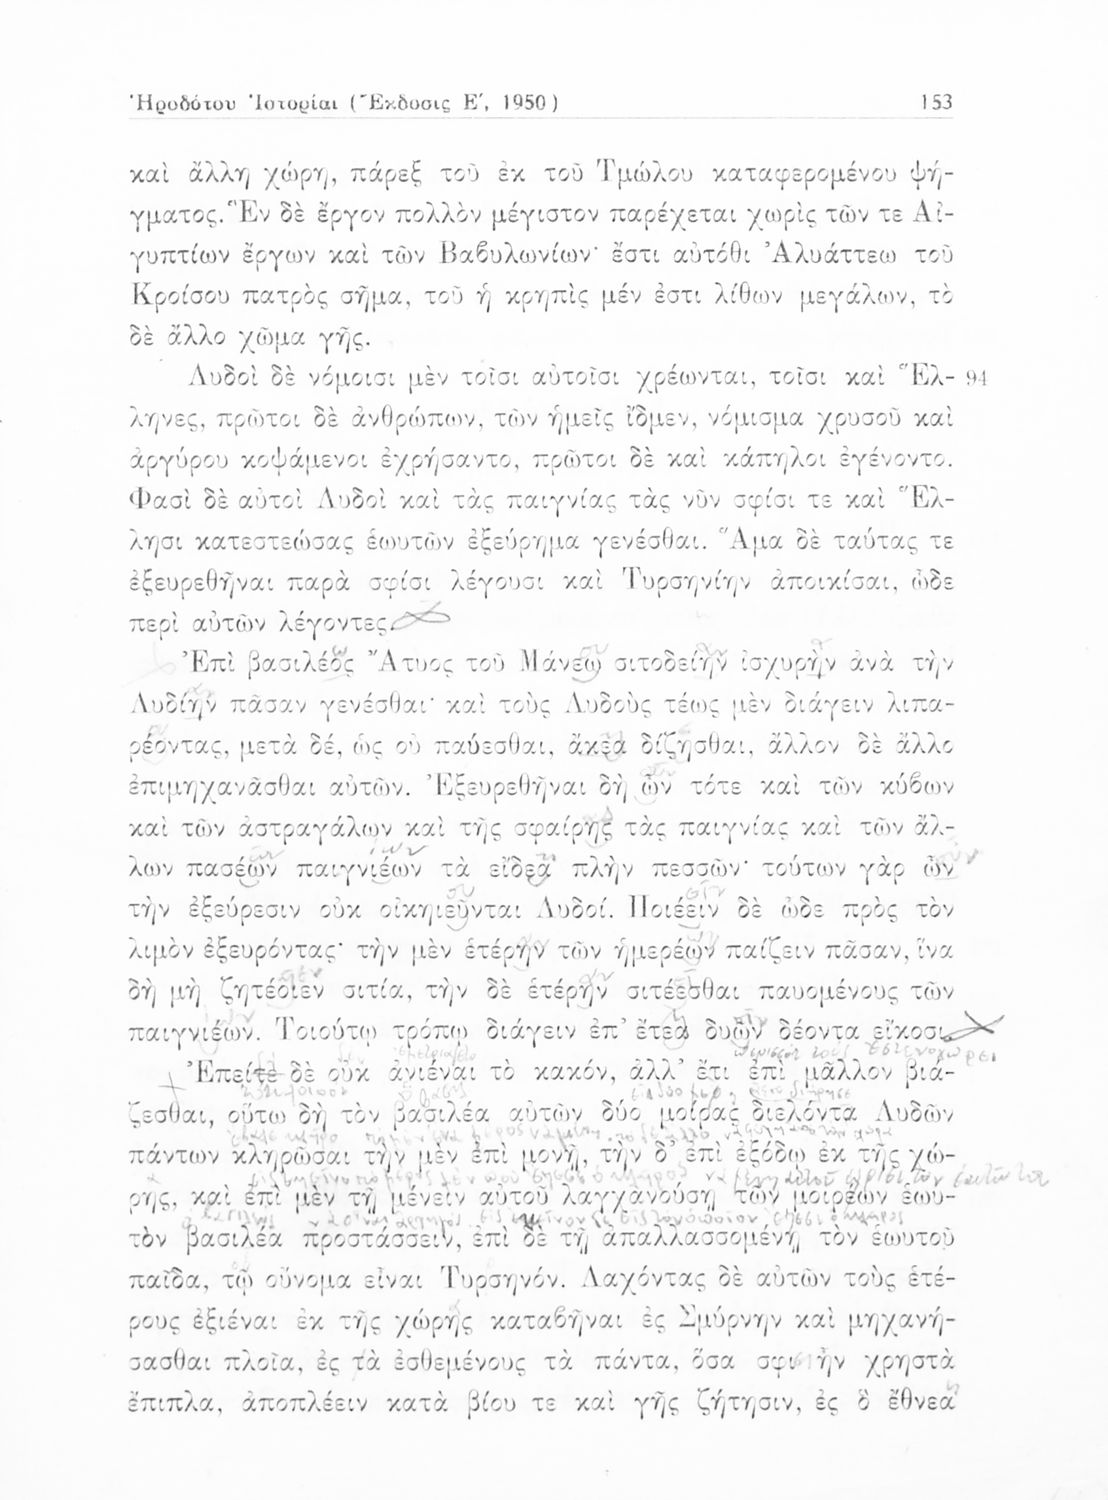 Ἡροδότου Ἱστορίαι (Ἔκδοσις Ε΄, 1950)
153
καὶ ἄλλη χώρη, πάρεξ τοῦ ἐκ τοῦ Τμώλου καταφερομένου ψή-
γματος. Ἓν δὲ ἔργον πολλὸν μέγιστον παρέχεται χωρὶς τῶν τε Αἰ-
γυπτίων ἔργων καὶ τῶν Βαβυλωνίων· ἔστι αὐτόθι Ἀλυάττεω τοῦ
Κροίσου πατρὸς σῆμα, τοῦ ἡ κρηπὶς μέν ἐστι λίθων μεγάλων, τὸ
δὲ ἄλλο χῶμα γῆς.
Λυδοὶ δὲ νόμοισι μὲν τοῖσι αὐτοῖσι χρέωνται, τοῖσι καὶ Ἕλ- 94
ληνες, πρῶτοι δὲ ἀνθρώπων, τῶν ἡμεῖς ἴδμεν, νόμισμα χρυσοῦ καὶ
ἀργύρου κοψάμενοι ἐχρήσαντο, πρῶτοι δὲ καὶ κάπηλοι ἐγένοντο.
Φασὶ δὲ αὐτοὶ Λυδοὶ καὶ τὰς παιγνίας τὰς νῦν σφίσι τε καὶ Ἕλ-
λησι κατεστεώσας ἑωυτῶν ἐξεύρημα γενέσθαι. Ἅμα δὲ ταύτας τε
ἐξευρεθῆναι παρὰ σφίσι λέγουσι καὶ Τυρσηνίην ἀποικίσαι, ὧδε
περὶ αὐτῶν λέγοντες.
Ἐπὶ βασιλέος Ἄτυος τοῦ Μάνεω σιτοδείην ἰσχυρὴν ἀνὰ τὴν
Λυδίην πᾶσαν γενέσθαι· καὶ τοὺς Λυδοὺς τέως μὲν διάγειν λιπα-
ρέοντας, μετὰ δέ, ὡς οὐ παύεσθαι, ἄκεα δίζησθαι, ἄλλον δὲ ἄλλο
ἐπιμηχανᾶσθαι αὐτῶν. Ἐξευρεθῆναι δὴ ὦν τότε καὶ τῶν κύβων
καὶ τῶν ἀστραγάλων καὶ τῆς σφαίρης τὰς παιγνίας καὶ τῶν ἄλ-
λων πασέων παιγνιέων τὰ εἴδεα πλὴν πεσσῶν· τούτων γὰρ ὦν
τὴν ἐξεύρεσιν οὐκ οἰκηιεῦνται Λυδοί. Ποιέειν δὲ ὧδε πρὸς τὸν
λιμὸν ἐξευρόντας· τὴν μὲν ἑτέρην τῶν ἡμερέων παίζειν πᾶσαν, ἵνα
δὴ μὴ ζητέοιεν σιτία, τὴν δὲ ἑτέρην σιτέεσθαι παυομένους τῶν
παιγνιέων. Τοιούτῳ τρόπῳ διάγειν ἐπ’ ἔτεα δυῶν δέοντα εἴκοσι.
Ἐπείτε δὲ οὐκ ἀνιέναι τὸ κακόν, ἀλλ’ ἔτι ἐπὶ μᾶλλον βιά-
ζεσθαι, οὕτω δὴ τὸν βασιλέα αὐτῶν δύο μοίρας διελόντα Λυδῶν
πάντων κληρῶσαι τὴν μὲν ἐπὶ μονῇ, τὴν δ’ ἐπὶ ἐξόδῳ ἐκ τῆς χώ-
ρης, καὶ ἐπὶ μὲν τῇ μένειν αὐτοῦ λαγχανούσῃ τῶν μοιρέων ἑωυ-
τὸν βασιλέα προστάσσειν, ἐπὶ δὲ τῇ ἀπαλλασσομένῃ τὸν ἑωυτοῦ
παῖδα, τῷ οὔνομα εἶναι Τυρσηνόν. Λαχόντας δὲ αὐτῶν τοὺς ἑτέ-
ρους ἐξιέναι ἐκ τῆς χώρης καταβῆναι ἐς Σμύρνην καὶ μηχανή-
σασθαι πλοῖα, ἐς τὰ ἐσθεμένους τὰ πάντα, ὅσα σφι ἦν χρηστὰ
ἔπιπλα, ἀποπλέειν κατὰ βίου τε καὶ γῆς ζήτησιν, ἐς ὃ ἔθνεα